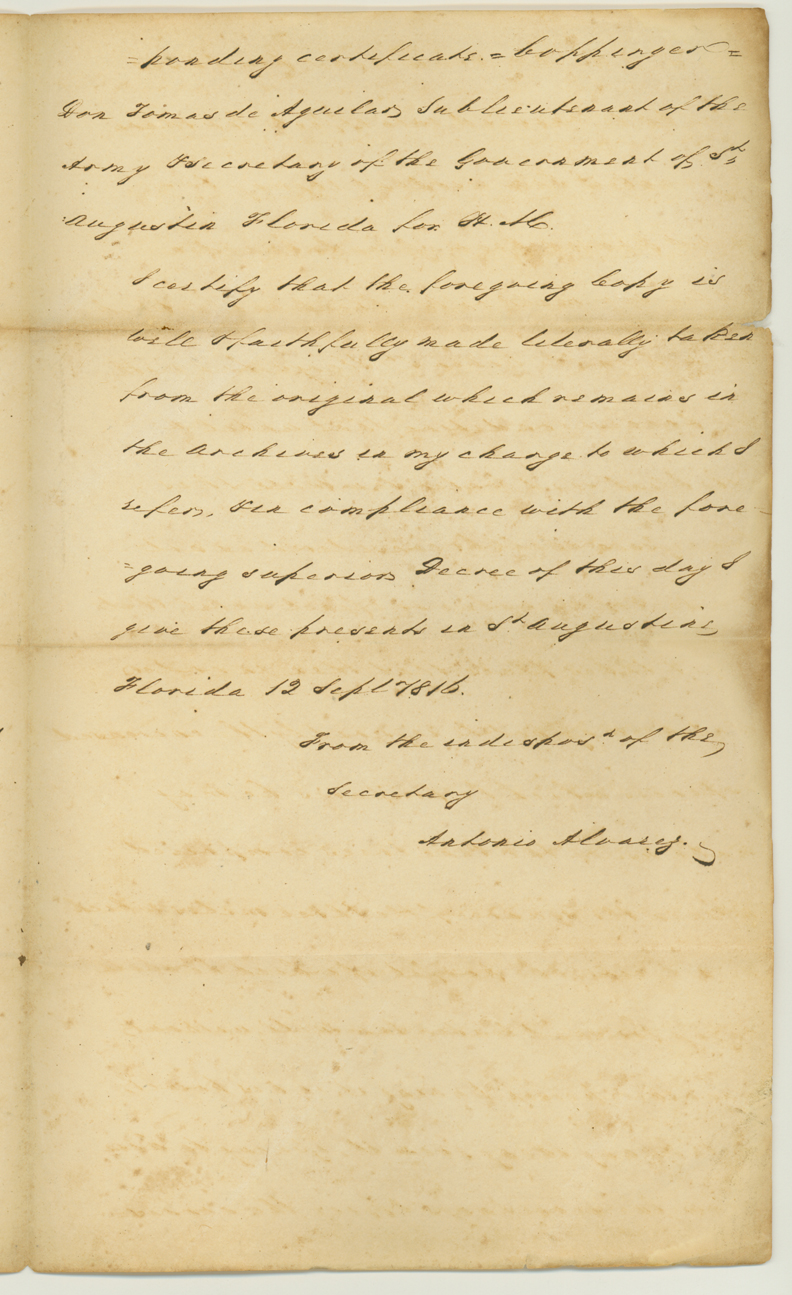 =ponding certificate. = Coppinger =
Don Tomas de Aguilar Sublieutenant of the
Army & Secretary of the Government of St
Augustin Florida for H. M.
I certify that the foregoing Copy is
well & faithfully made literally taken
from the original which remains in
the archives in my charge to which I
refer, & in compliance with the fore-
=going superior Decree of this day I
give these presents in St Augustine,
Florida 12 Sept 1816.
From the indisposn of the
Secretary
Antonio Alvarez.